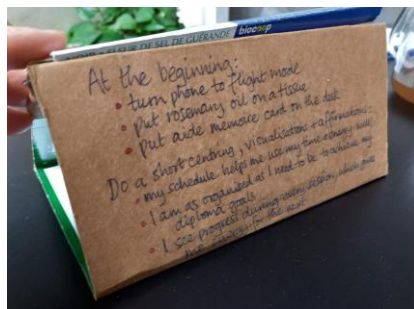 FLEUR DE SEL DE GUÉRANDE biocoop
At the beginning:
• turn phone to flight mode
• put rosemary oil on a tissue
• put aide memoire card on the desk
Do a short centring, visualisations + affirmations:
• my schedule helps me use my time + energy well
• I am as organised as I need to be to achieve my
diploma goals
• I see progress during every session, which gives
me energy for the next